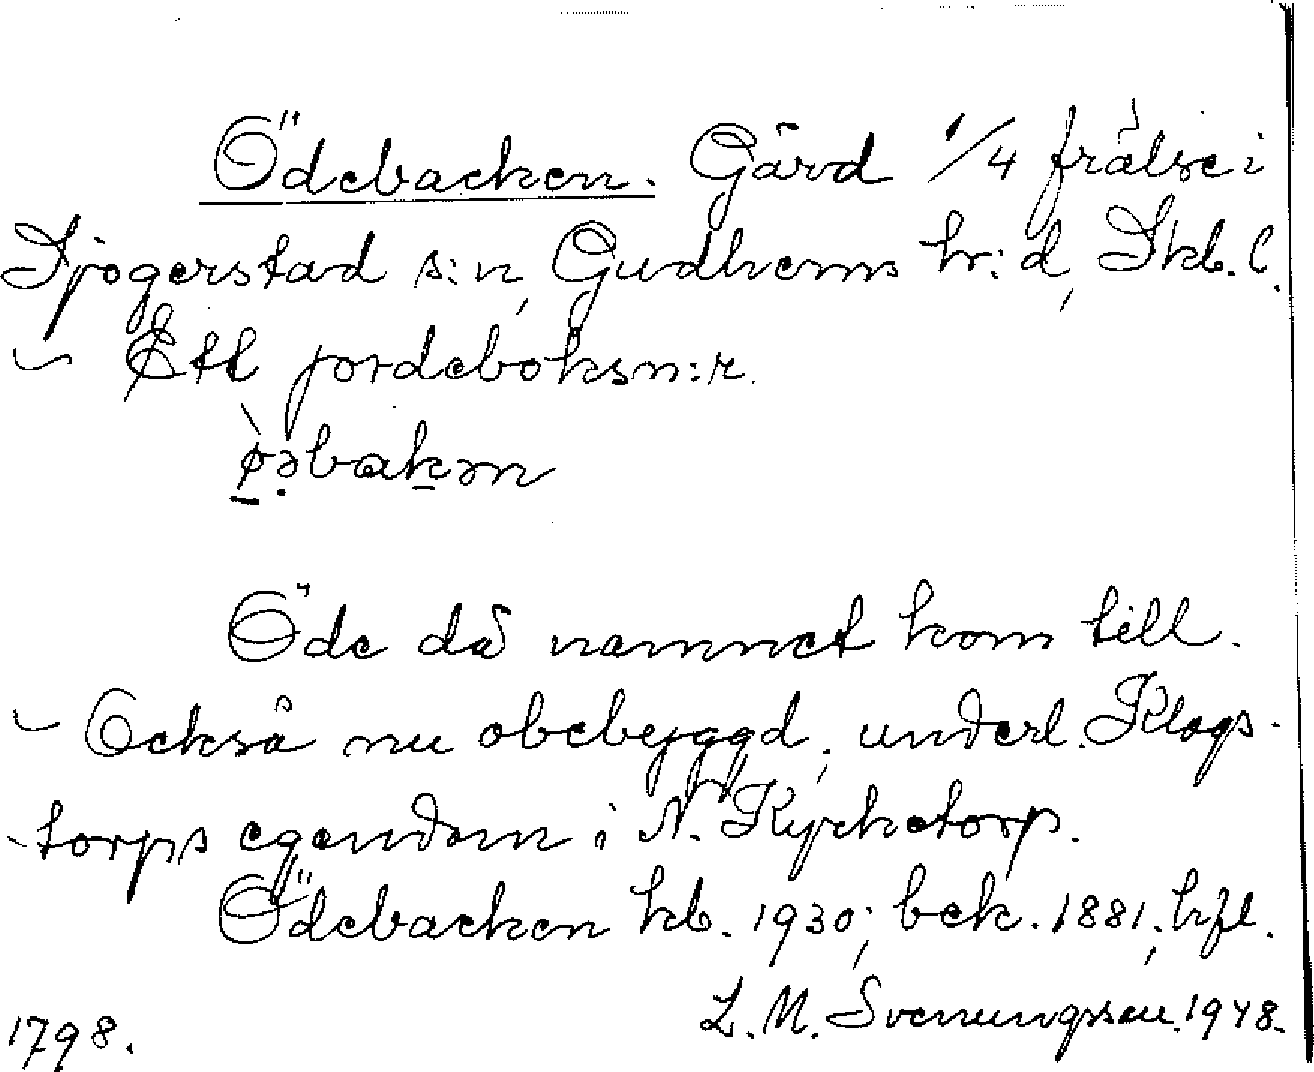 Ödebacken. Gård 1/4 frälse i
Sjogerstad s:n, Gudhems hr:d, Skb. l.
– Ett jordeboksn:r.
ø̀əbakən
Öde då namnet kom till.
– Också nu obebyggd, underl. Klags-
torps egendom i N. Kyrketorp.
Ödebacken kb. 1930; bek. 1881; hfl.
L. M. Svenungsson. 1948.
1798.